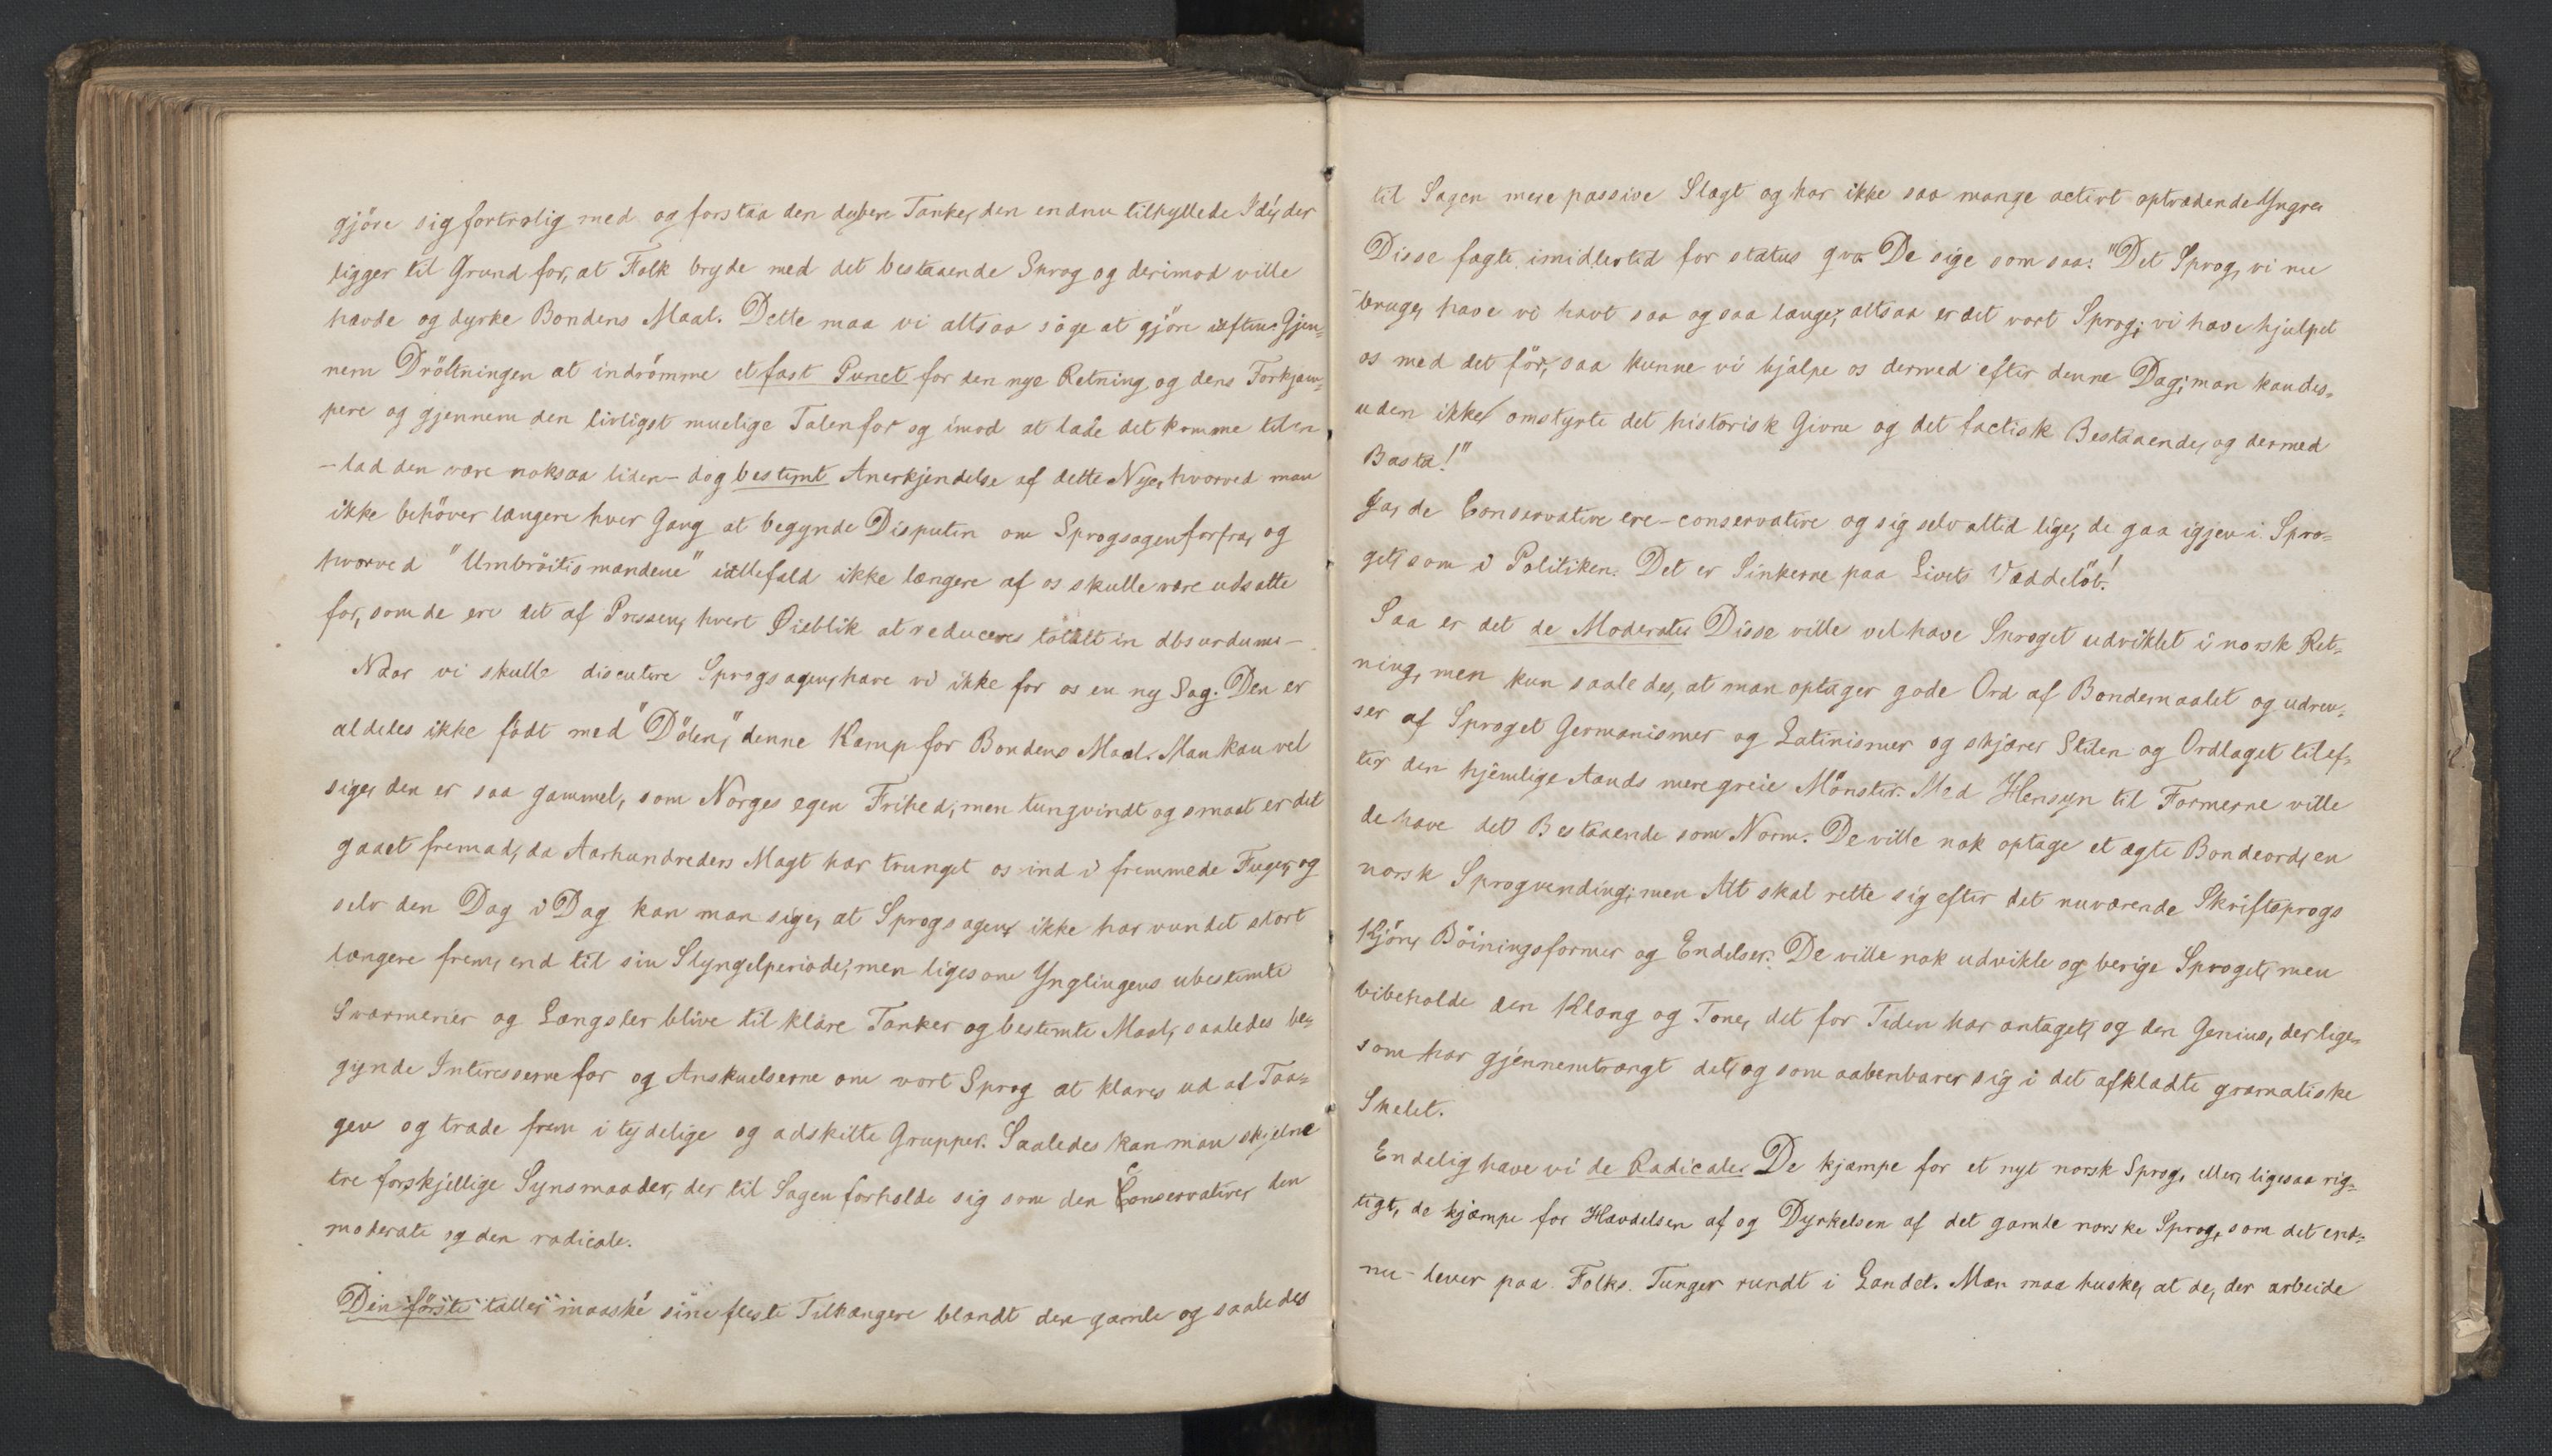 gjöre sig fortrolig med og forstaa den dybere Tanke, den endnu tilhyllede Idé, der
ligger til Grund for, at Folk bryde med det bestaaende Sprog og derimod ville
hævde og dyrke Bondens Maal. Dette maa vi altsaa söge at gjöre iaften: Gjen-
nem Dröftningen at indrömme et fast Punct for den nye Retning og dens Forkjæm-
pere og gjennem den livligst muelige Talen for og imod at lade det komme til en
- lad den være noksaa liden - dog bestemt Anerkjendelse af dette Nye, hvorved man
ikke behöver længere hver Gang at begynde Disputen om Sprogsagen forfra, og
hvorved "Umbröitismændene" iallefald ikke længere af os skulle være udsatte
for, som de ere det af Pressen, hvert Øieblik at reduceres totalt in absurdum. -
Naar vi skulle discutere Sprogsagen, have vi ikke for os en ny Sag. Den er
aldeles ikke födt med "Dölen," denne Kamp for Bondens Maal. Man kan vel
sige, den er saa gammel, som Norges egen Frihed, men tungvindt og smaat er det
gaaet fremad, da Aarhundreders Magt har tvunget os ind i fremmede Fuger, og
selv den Dag i Dag kan man sige, at Sprogsagen ikke har vundet stort
længere frem, end til sin Slyngelperiode; men ligesom Ynglingens ubestemte
Sværmerier og Længsler blive til klare Tanker og bestemte Maal, saaledes be-
gynde Interesserne for og Anskuelserne om vort Sprog at klares ud af Taa-
gen og træde frem i tydelige og adskilte Grupper. Saaledes kan man skjelne
tre forskjellige Synsmaader, der til Sagen forholde sig som den Conservative, den
moderate og den radicale.
Den förste tæller maaské sine fleste Tilhængere blandt den gamle og saaledes
til Sagen mere passive Slægt og har ikke saa mange activt optrædende Yngre.
Disse fægte imidlertid for status qvo. De sige som saa: "Det Sprog, vi nu
bruge, have vi havt saa og saa længe; altsaa er det vort Sprog; vi have hjulpet
os med det för, saa kunne vi hjælpe os dermed efter denne Dag; man kan des-
uden ikke omstyrte det historisk Givne og det factisk Bestaaende, og dermed
Basta!"
Ja, de Conservative ere - conservative og sig selv altid lige; de gaa igjen i Spro-
get, som i Politiken. Det er Sinkerne paa Livets Væddelöb!
Saa er det de Moderate. Disse ville vel have Sproget udviklet i norsk Ret-
ning, men kun saaledes, at man optager gode Ord af Bondemaalet og udren-
ser af Sproget Germanismer og Latinismer og skjærer Stilen og Ordlaget til ef-
ter den hjemlige Aands mere greie Mönster. Med Hensyn til Formerne ville
de have det Bestaaende som Norm. De ville nok optage et ægte Bondeord, en
norsk Sprogvending; men Alt skal rette sig efter det nuværende Skriftsprogs
Kjön, Böiningsformer og Endelser. De ville nok udvikle og berige Sproget, men
bibeholde den Klang og Tone, det for Tiden har antaget, og den Genius, der lige-
som har gjennemtrængt det, og som aabenbarer sig i det afklædte gramatiske
Skelet.
Endelig have vi de Radicale. De kjæmpe for et nyt norsk Sprog, eller, ligesaa rig-
tigt, de kjæmpe for Hævdelsen af og Dyrkelsen af det gamle norske Sprog, som det end-
nu lever paa Folks Tunger rundt i Landet. Man maa huske, at de, der arbeide